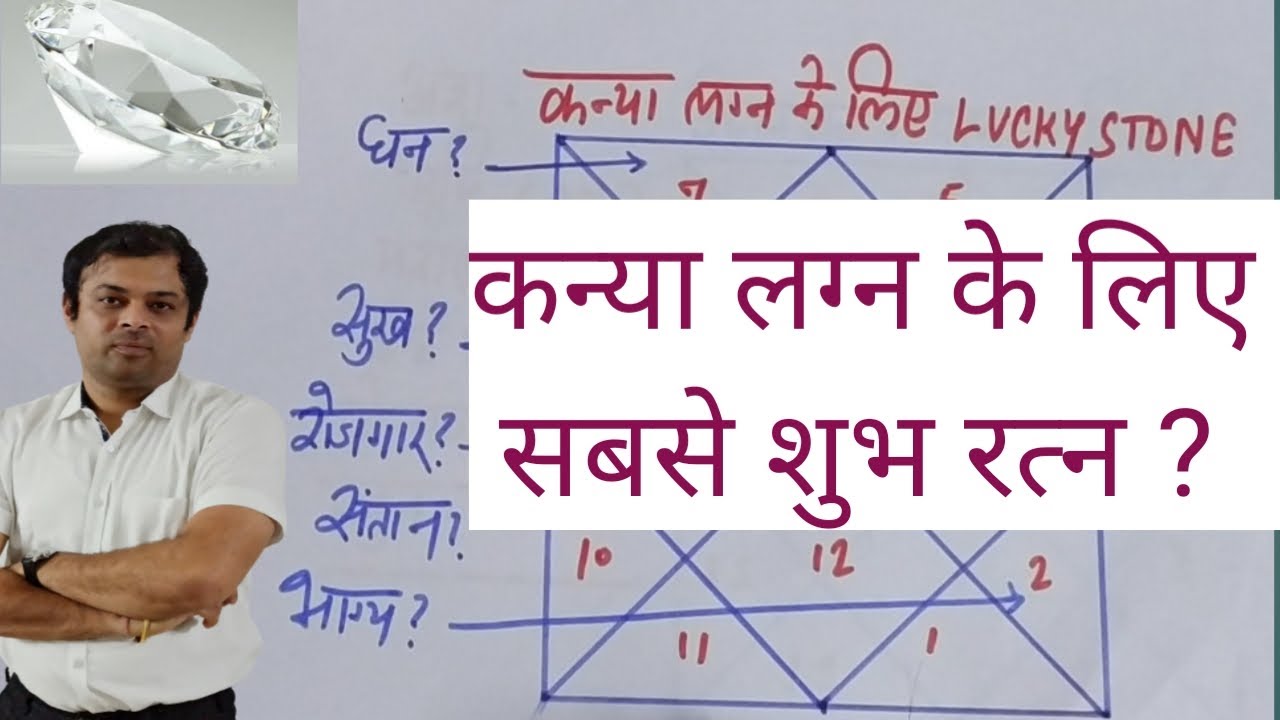 कन्या लग्न के लिए LUCKY STONE
धन?
7
कन्या लग्न के लिए
सबसे शुभ रत्न ?
सुख?
रोजगार?
संतान?
भाग्य?
10
12
2
11
1